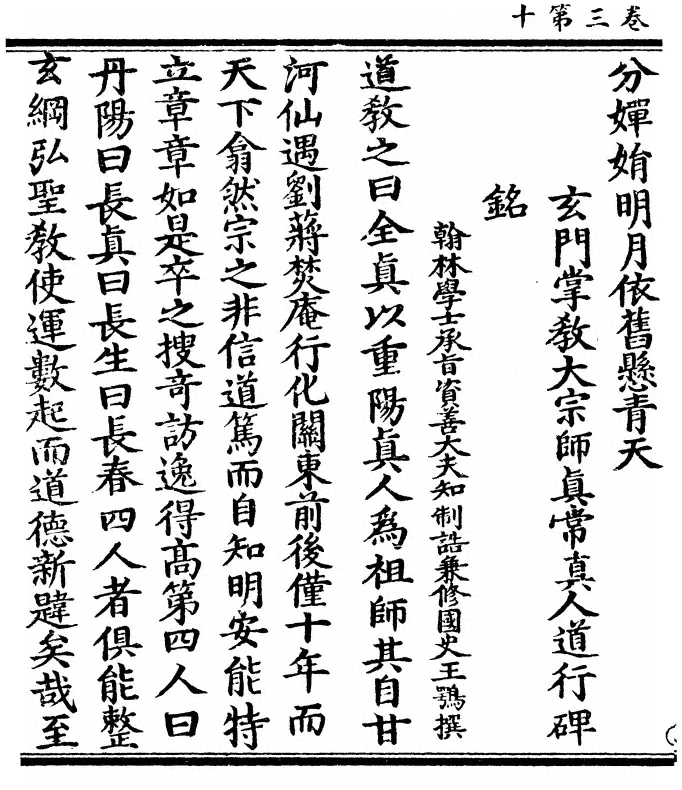 卷三第十
分嬋娟明月依舊懸青天
玄門掌教大宗師真常真人道行碑
銘
翰林學士承旨資善大夫知制誥兼修國史王鶚撰
道教之曰全眞以重陽眞人爲祖師其自甘
河仙遇劉蔣焚庵行化關東前後僅十年而
天下翕然宗之非信道篤而自知明安能特
立章章如是卒之搜奇訪逸得高第四人曰
丹陽曰長眞曰長生曰長春四人者俱能整
玄綱弘聖教使運數起而道德新韙矣哉至